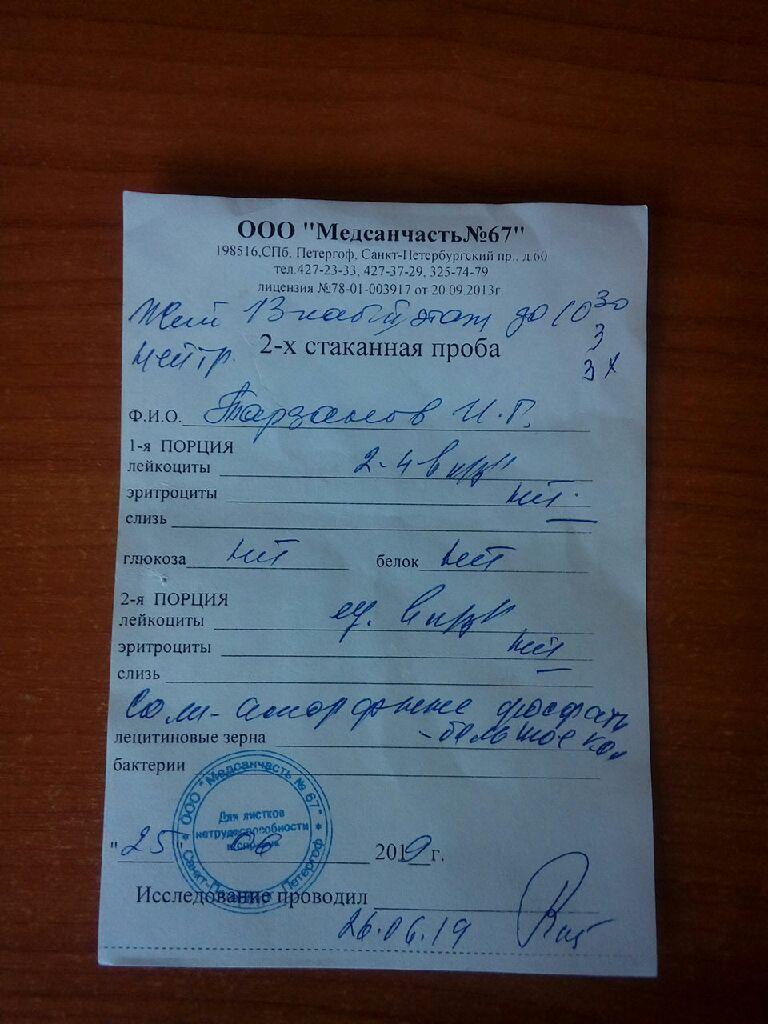 ООО "Медсанчасть№67"
198516,СПб. Петергоф, Санкт-Петербургский пр., д.60
тел.427-23-33, 427-37-29, 325-74-79
лицензия №78-01-003917 от 20.09.2013г.
13 этаж до 10 30
3
2-х стаканная проба
3х
Ф.И.О. И.Г.
1-я ПОРЦИЯ
лейкоциты 2-4 в п/зр
эритроциты нет
слизь
глюкоза нет белок нет
2-я ПОРЦИЯ
лейкоциты ед. в п/зр
эритроциты нет
слизь
Соли - аморфные фосфаты
лецитиновые зерна - большое кол
бактерии
ООО "Медсанчасть № 67"
Для листков
нетрудоспособности
Санкт-Петербург Петергоф
"25" 06 2019г.
Исследование проводил
26.06.19